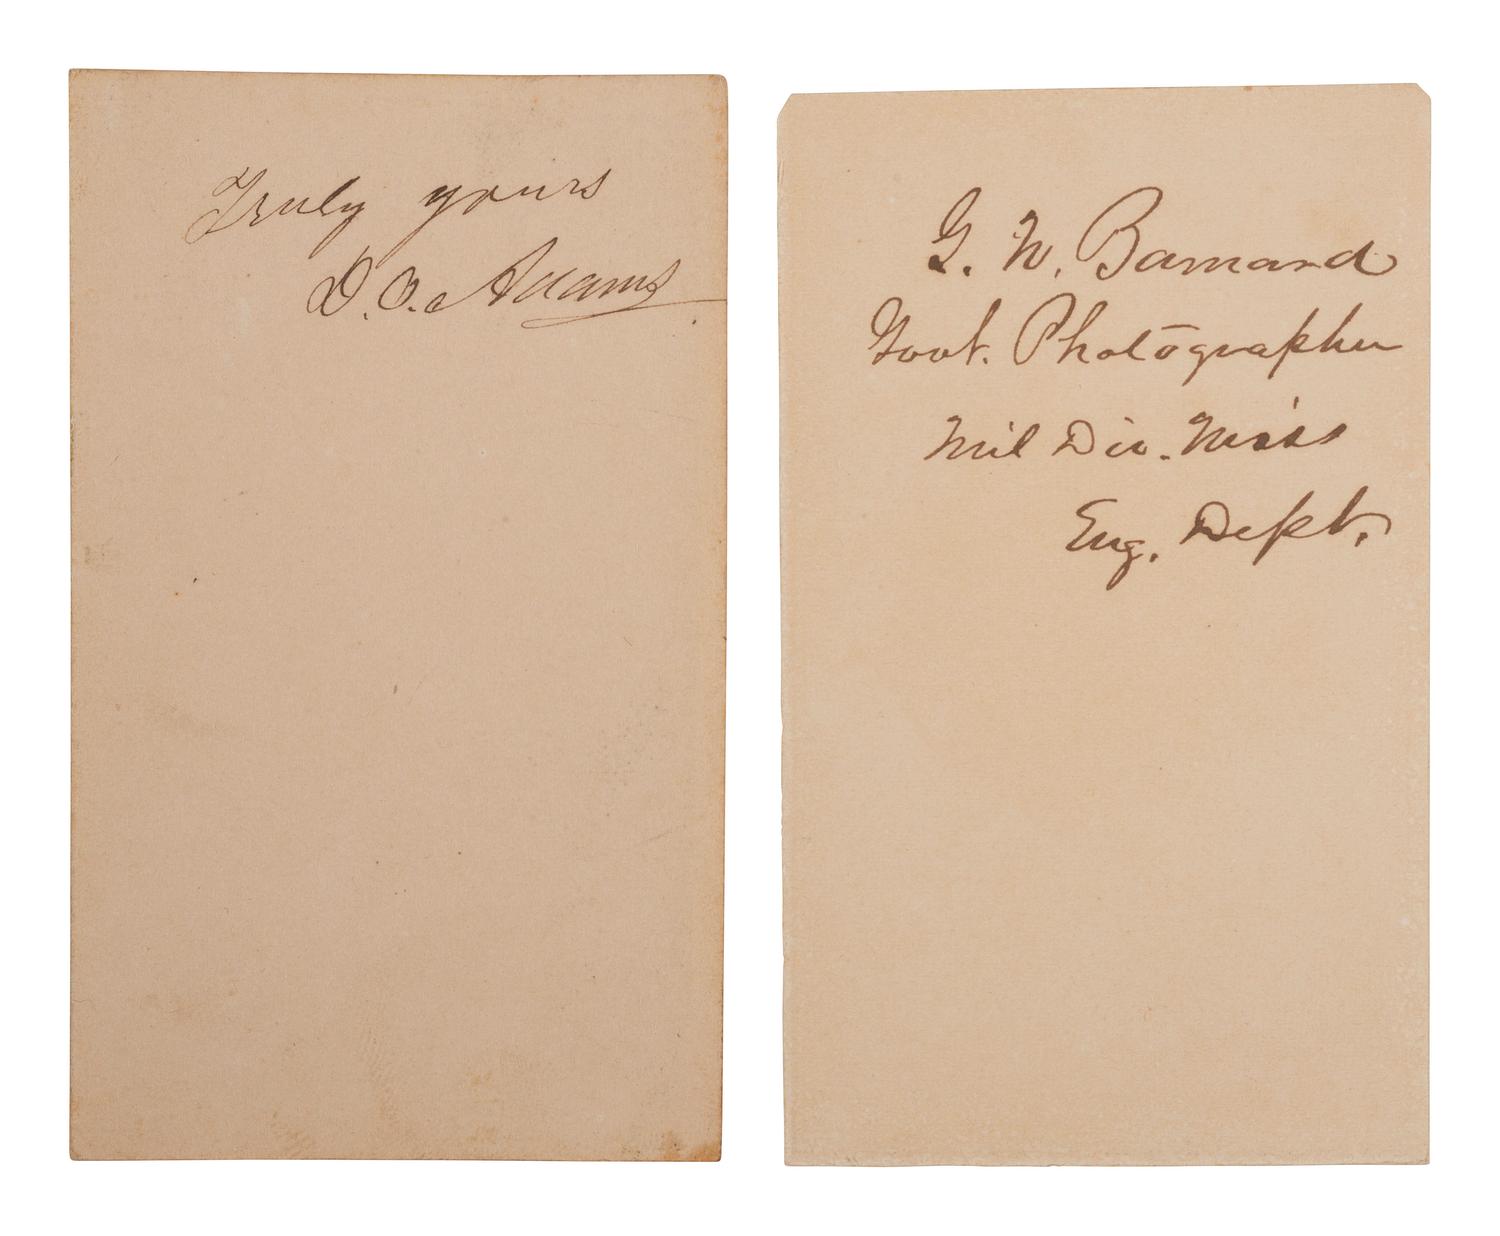 Truly yours
D. O. Adams
G. W. Barnard
Govt. Photographer
Mil Div. Miss
Eng. Dept.